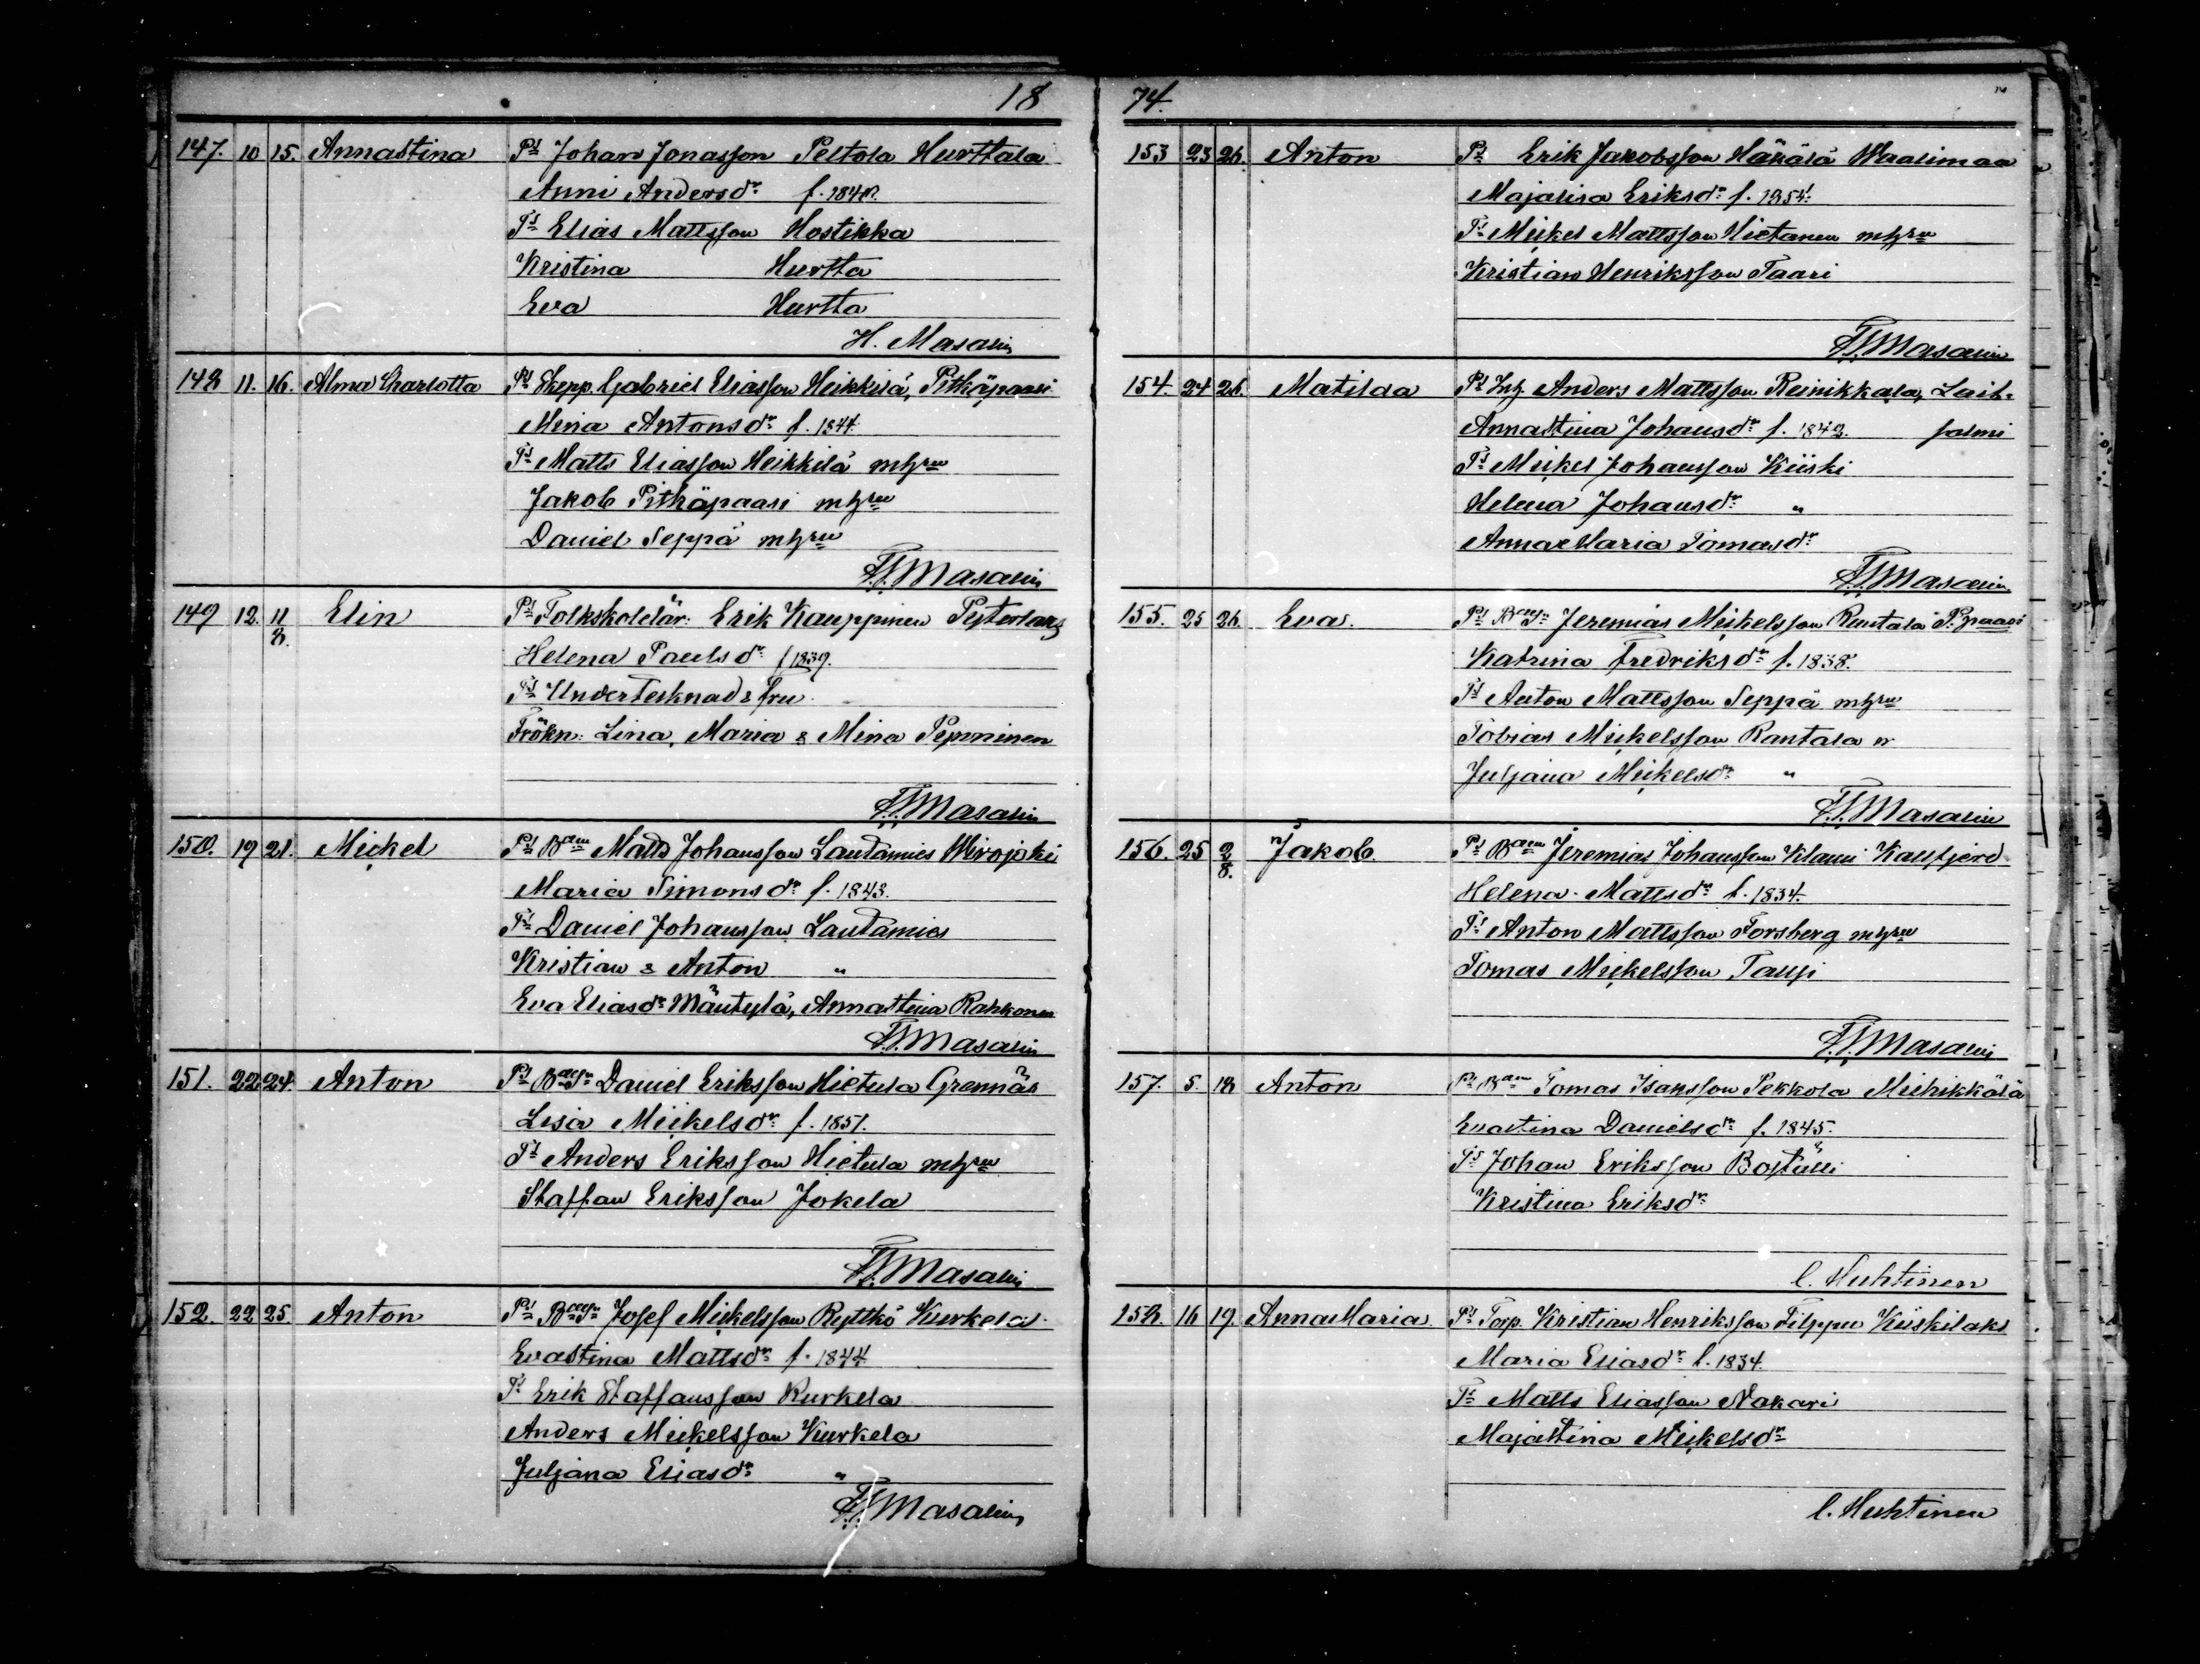 18
147. 10 15. Annastina Ps Johan Jonasson Peltola Hurttala
Anni Andersdr f. 1840.
Ts Elias Mattsson Hostikka
Kristina Hurtta
Eva Hurtta
H. Masalin
148 11. 16. Alma Charlotta Ps Skepp. Gabriel Eliasson Heikkilä, Pitkäpaasi
Mina Antonsdr f. 1844.
Ts Matts Eliasson Heikkilä m hru
Jakob Pitkäpaasi m hru
Daniel Seppä m hru
F.F. Masalin
149 12. 11/8. Elin Ps Folkskolelär: Erik Kauppinen Pyterlaks
Helena Paulsdr f 1839.
Ts Undertecknads fru
Frökn: Lina, Maria & Mina Pynninen
F.F. Masalin
150. 19 21. Mickel Ps Bam Matts Johansson Lautamies Wirojoki
Maria Simonsdr f. 1843.
Ts Daniel Johansson Lautamies
Kristian & Anton "
Eva Eliasdr Mäntylä, Annastina Rahkonen
F.F. Masalin
151. 22 24. Anton Ps Daniel Eriksson Hietula Grennäs
Lisa Mickelsdr f. 1851.
Ts Anders Eriksson Hietula m hru
Staffan Eriksson Jokela
F.F. Masalin
152. 22 25. Anton Ps Josef Mickelsson Ryttkö Kurkela
Evastina Mattsdr f. 1844
Ts Erik Staffansson Kurkela
Anders Mickelsson Kurkela
Juljana Eliasdr "
F.F. Masalin
74.
153 23 26. Anton Ps Erik Jakobsson Häkälä Waalimaa
Majalisa Eriksdr f. 1854.
Ts Mickel Mattsson Hietanen m hru
Kristian Henriksson Taari
F.F. Masalin
154. 24 26. Matilda Ps Inh. Anders Mattsson Reinikkala, Lait-
Annastina Johansdr f. 1842. salmi
Ts Mickel Johansson Kiiski
Helena Johansdr "
Anna Maria Tomasdr
F.F. Masalin
155. 25 26. Eva. Ps Jeremias Mickelsson Rantala P:paasi
Katrina Fredriksdr f. 1838.
Ts Anton Mattsson Seppä m hru
Tobias Mickelsson Rantala
Juljana Mickelsdr "
F.F. Masalin
156. 25 2/8. Jakob Ps Bam Jeremias Johansson Klami Kallfjerd
Helena Mattsdr f. 1834.
Ts Anton Mattsson Forsberg m hru
Tomas Mickelsson Tauji
F.F. Masalin
157. 5. 18 Anton Ps Bam Tomas Isaksson Pekkola Miehikkälä
Evastina Danielsdr f. 1845.
Ts Johan Eriksson
Kristina Eriksdr
C. Huhtinen
158. 16 19. Anna Maria. Ps Torp. Kristian Henriksson Filppu Kiiskilaks
Maria Eliasdr f. 1834.
Ts Matts Eliasson Nakari
Majastina Mickelsdr
C. Huhtinen